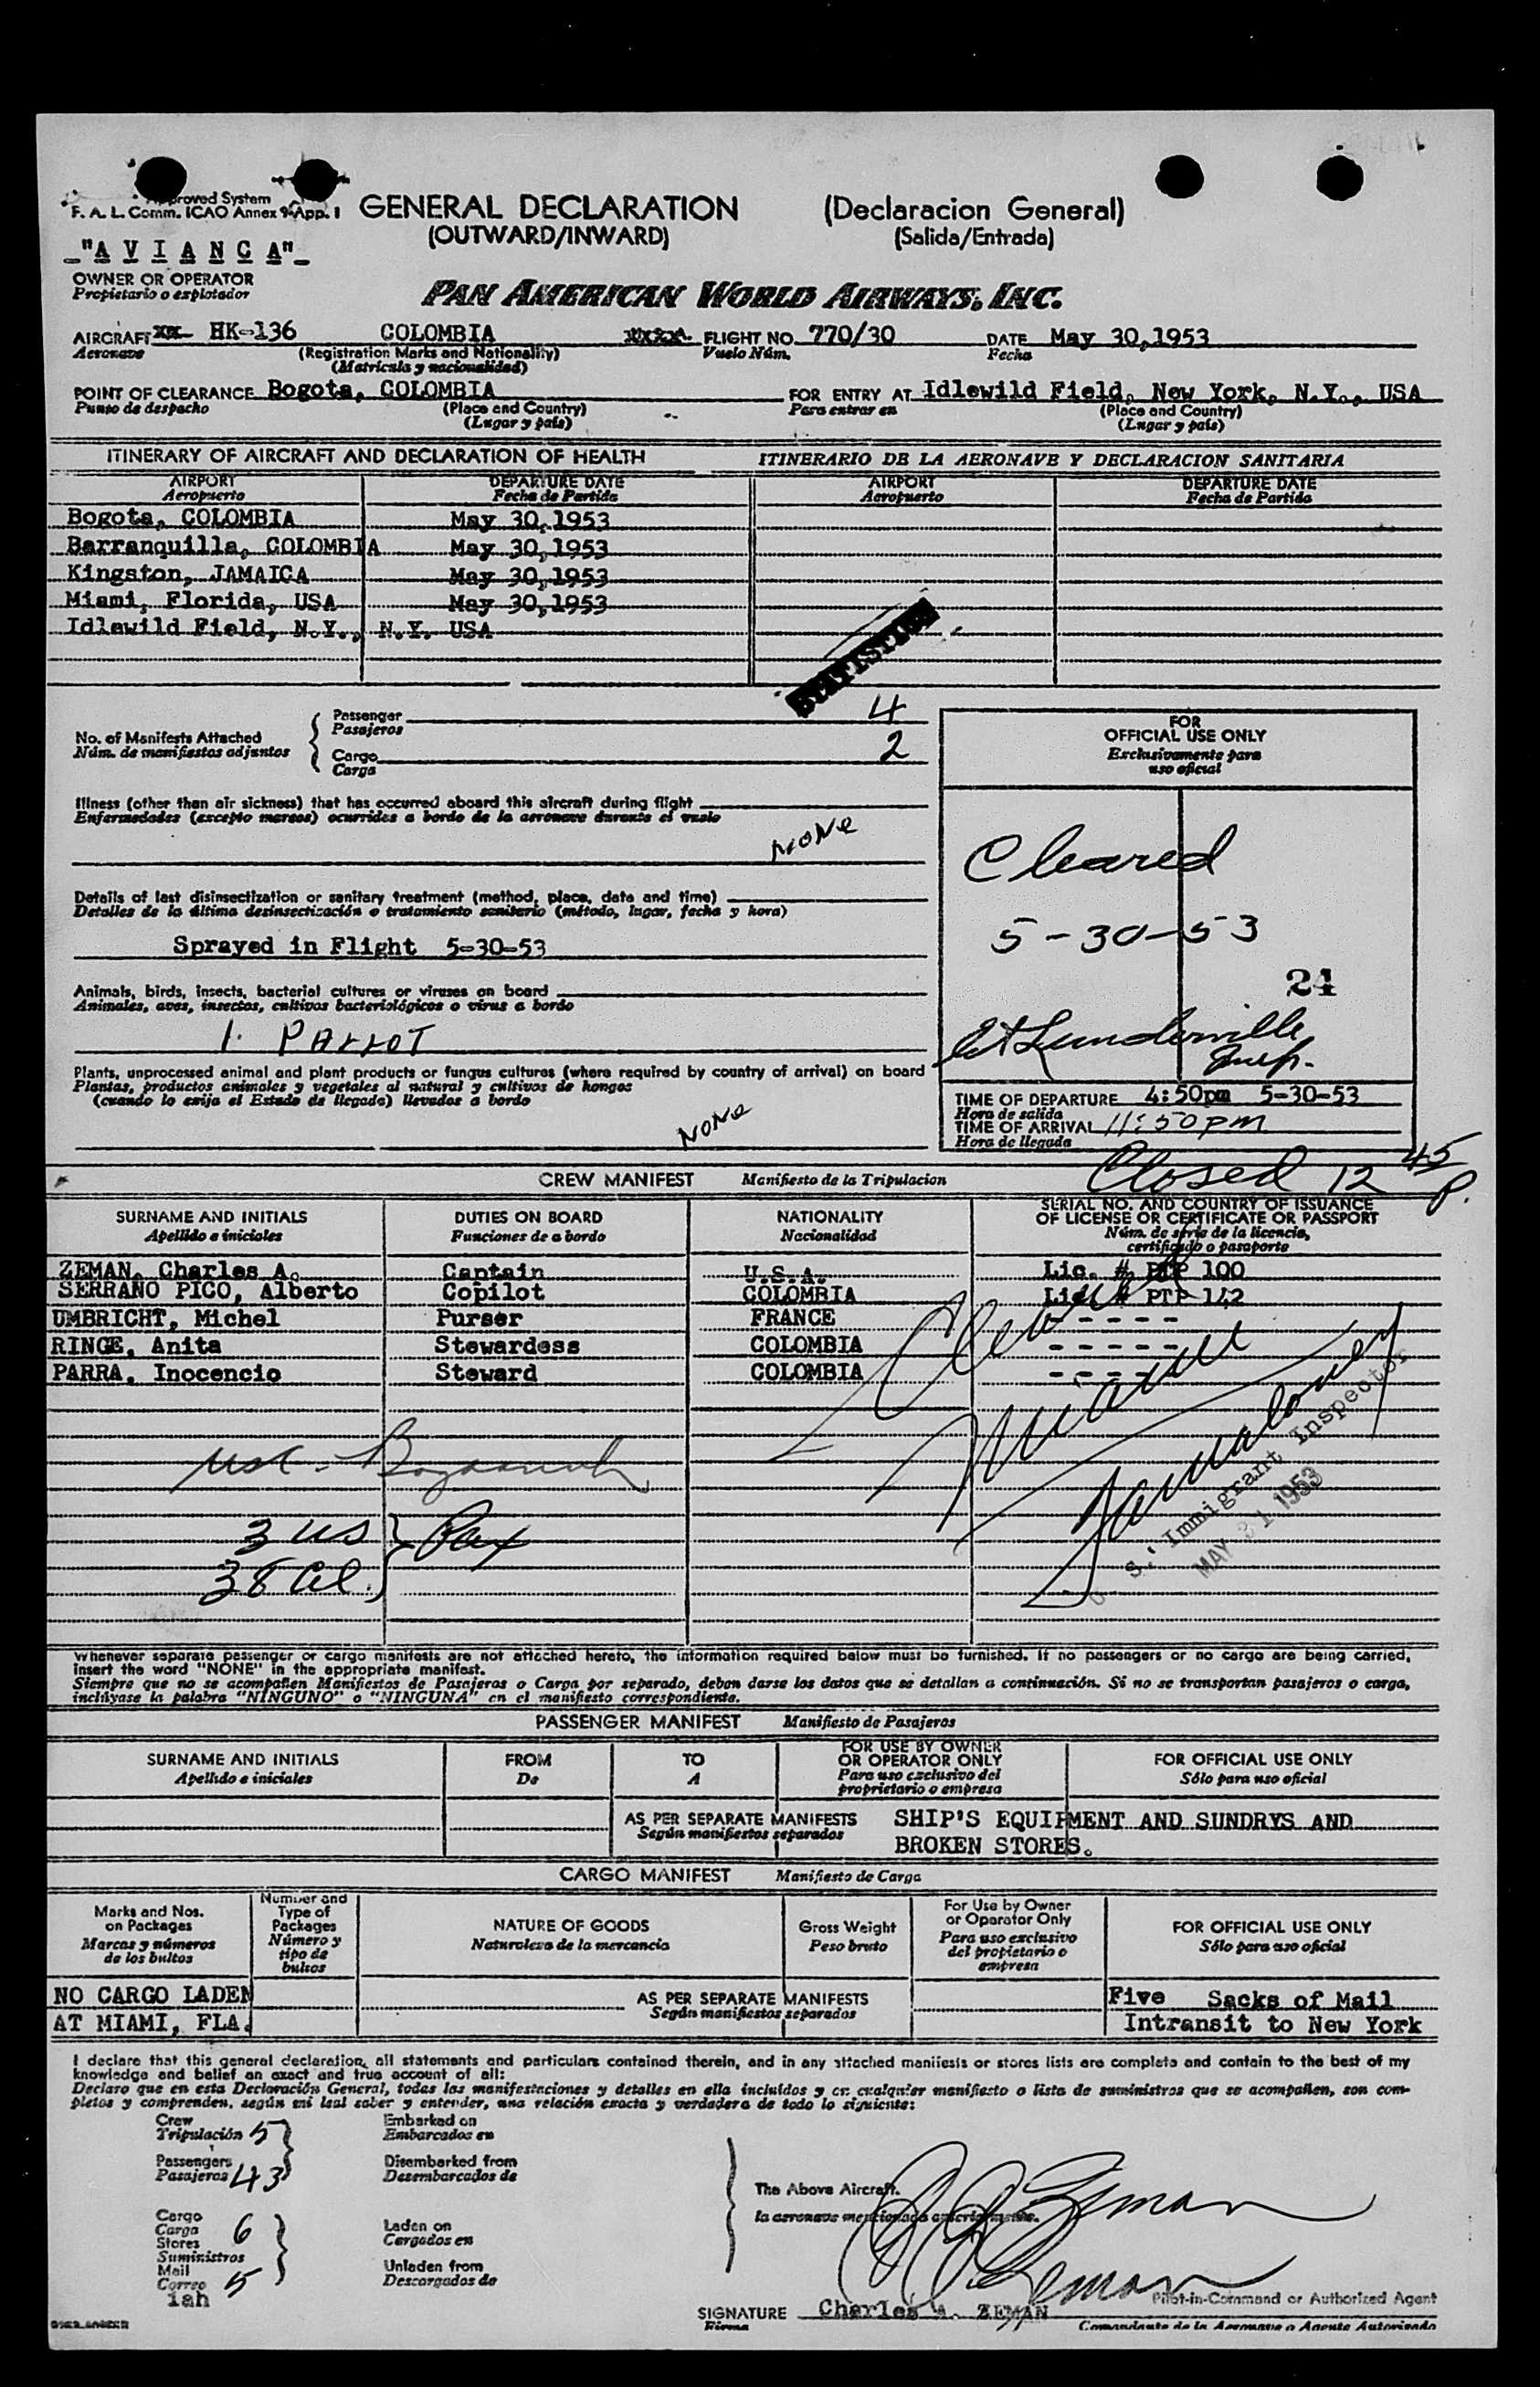 roved System
F. A. L. Comm. ICAO Annex 9-App. 1
GENERAL DECLARATION (Declaracion General)
(OUTWARD/INWARD) (Salida/Entrada)
"A V I A N C A"
OWNER OR OPERATOR
Propietario o explotador
PAN AMERICAN WORLD AIRWAYS, INC.
AIRCRAFT HK-136 COLOMBIA FLIGHT NO. 770/30 DATE May 30,1953
Aeronave (Registration Marks and Nationality) Vuelo Núm. Fecha
(Matricula y nacionalidad)
POINT OF CLEARANCE Bogota, COLOMBIA FOR ENTRY AT Idlewild Field, New York, N.Y., USA
Punto de despacho (Place and Country) Para entrar en (Place and Country)
(Lugar y país) (Lugar y país)
ITINERARY OF AIRCRAFT AND DECLARATION OF HEALTH ITINERARIO DE LA AERONAVE Y DECLARACION SANITARIA
AIRPORT DEPARTURE DATE AIRPORT DEPARTURE DATE
Aeropuerto Fecha de Partida Aeropuerto Fecha de Partida
Bogota, COLOMBIA May 30,1953
Barranquilla, COLOMBIA May 30,1953
Kingston, JAMAICA May 30,1953
Miami, Florida, USA May 30,1953
Idlewild Field, N.Y., N.Y. USA
STATISTICS
Passenger 4
Pasajeros
No. of Manifests Attached
Núm. de manifiestos adjuntos
Cargo 2
Carga
FOR
OFFICIAL USE ONLY
Exclusivamente para
uso oficial
Illness (other than air sickness) that has occurred aboard this aircraft during flight
Enfermedades (excepto mareos) ocurridas a bordo de la aeronave durante el vuelo
NONe
Cleared
5-30-53
24
Insp.
Details of last disinsectization or sanitary treatment (method, place, date and time)
Detalles de la última desinsectización o tratamiento sanitario (método, lugar, fecha y hora)
Sprayed in Flight 5-30-53
Animals, birds, insects, bacterial cultures or viruses on board
Animales, aves, insectos, cultivos bacteriológicos o virus a bordo
1. PARROT
Plants, unprocessed animal and plant products or fungus cultures (where required by country of arrival) on board
Plantas, productos animales y vegetales al natural y cultivos de hongos
(cuando lo exija el Estado de llegada) llevados a bordo
NONe
TIME OF DEPARTURE 4:50pm 5-30-53
Hora de salida
TIME OF ARRIVAL 11:50pm
Hora de llegada
Closed 12 45 P.
CREW MANIFEST Manifiesto de la Tripulacion
SURNAME AND INITIALS DUTIES ON BOARD NATIONALITY SERIAL NO. AND COUNTRY OF ISSUANCE
OF LICENSE OR CERTIFICATE OR PASSPORT
Apellido e iniciales Funciones de a bordo Nacionalidad Núm. de serie de la licencia,
certificado o pasaporte
ZEMAN, Charles A. Captain U.S.A. Lic. # PTP 100
SERRANO PICO, Alberto Copilot COLOMBIA Lic. # PTP 142
UMBRICHT, Michel Purser FRANCE - - - - -
RINGE, Anita Stewardess COLOMBIA - - - - -
PARRA, Inocencio Steward COLOMBIA - - - -
3 US } Pax
38 al.
U. S. Immigrant Inspector
MAY 31 1953
Whenever separate passenger or cargo manifests are not attached hereto, the information required below must be furnished. If no passengers or no cargo are being carried,
insert the word "NONE" in the appropriate manifest.
Siempre que no se acompañen Manifiestos de Pasajeros o Carga por separado, deban darse los datos que se detallan a continuación. Si no se transportan pasajeros o carga,
inclúyase la palabra "NINGUNO" o "NINGUNA" en el manifiesto correspondiente.
PASSENGER MANIFEST Manifiesto de Pasajeros
SURNAME AND INITIALS FROM TO FOR USE BY OWNER
OR OPERATOR ONLY FOR OFFICIAL USE ONLY
Apellido e iniciales De A Para uso exclusivo del
propietario o empresa Sólo para uso oficial
AS PER SEPARATE MANIFESTS SHIP'S EQUIPMENT AND SUNDRYS AND
Según manifiestos separados BROKEN STORES.
CARGO MANIFEST Manifiesto de Carga
Marks and Nos.
on Packages
Marcas y números
de los bultos
Number and
Type of
Packages
Número y
tipo de
bultos
NATURE OF GOODS
Naturaleza de la mercancia
Gross Weight
Peso bruto
For Use by Owner
or Operator Only
Para uso exclusivo
del propietario o
empresa
FOR OFFICIAL USE ONLY
Sólo para uso oficial
NO CARGO LADEN AS PER SEPARATE MANIFESTS Five Sacks of Mail
AT MIAMI, FLA. Según manifiestos separados Intransit to New York
I declare that this general declaration, all statements and particulars contained therein, and in any attached manifests or stores lists are complete and contain to the best of my
knowledge and belief an exact and true account of all:
Declaro que en esta Declaración General, todas las manifestaciones y detalles en ella incluidos y en cualquier manifiesto o lista de suministros que se acompañen, son com-
pletos y comprenden, según mi leal saber y entender, una relación exacta y verdadera de todo lo siguiente:
Crew Embarked on
Tripulación 5 Embarcados en
Passengers Disembarked from
Pasajeros 43 Desembarcados de
The Above Aircraft.
la aeronave mencionada anteriormente.
Cargo
Carga 6 Laden on
Stores Cargados en
Suministros
Mail Unladen from
Correo 5 Descargados de
iah
Zeman
Zeman
Pilot-in-Command or Authorized Agent
SIGNATURE Charles A. ZEMAN
Firma Comandante de la Aeronave o Agente Autorizado